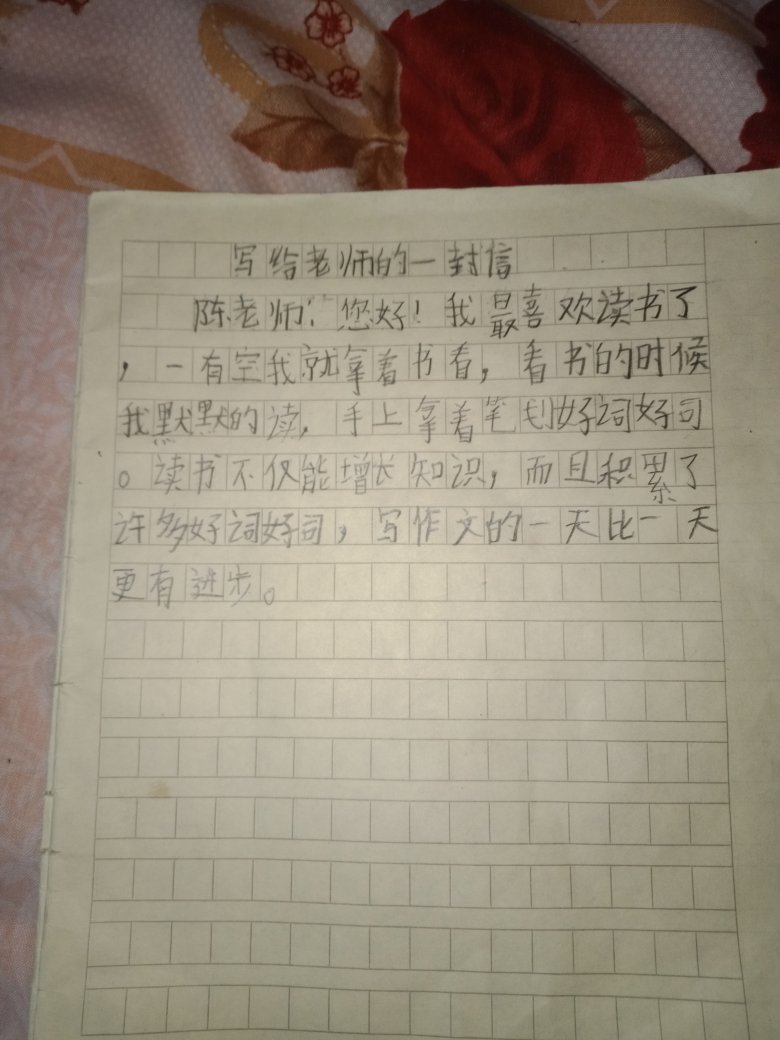 写给老师的一封信
陈老师：您好！我最喜欢读书了
，一有空我就拿着书看，看书的时候
我默默的读，手上拿着笔划好词好句
。读书不仅能增长知识，而且积累了
许多好词好句，写作文的一天比一天
更有进步。